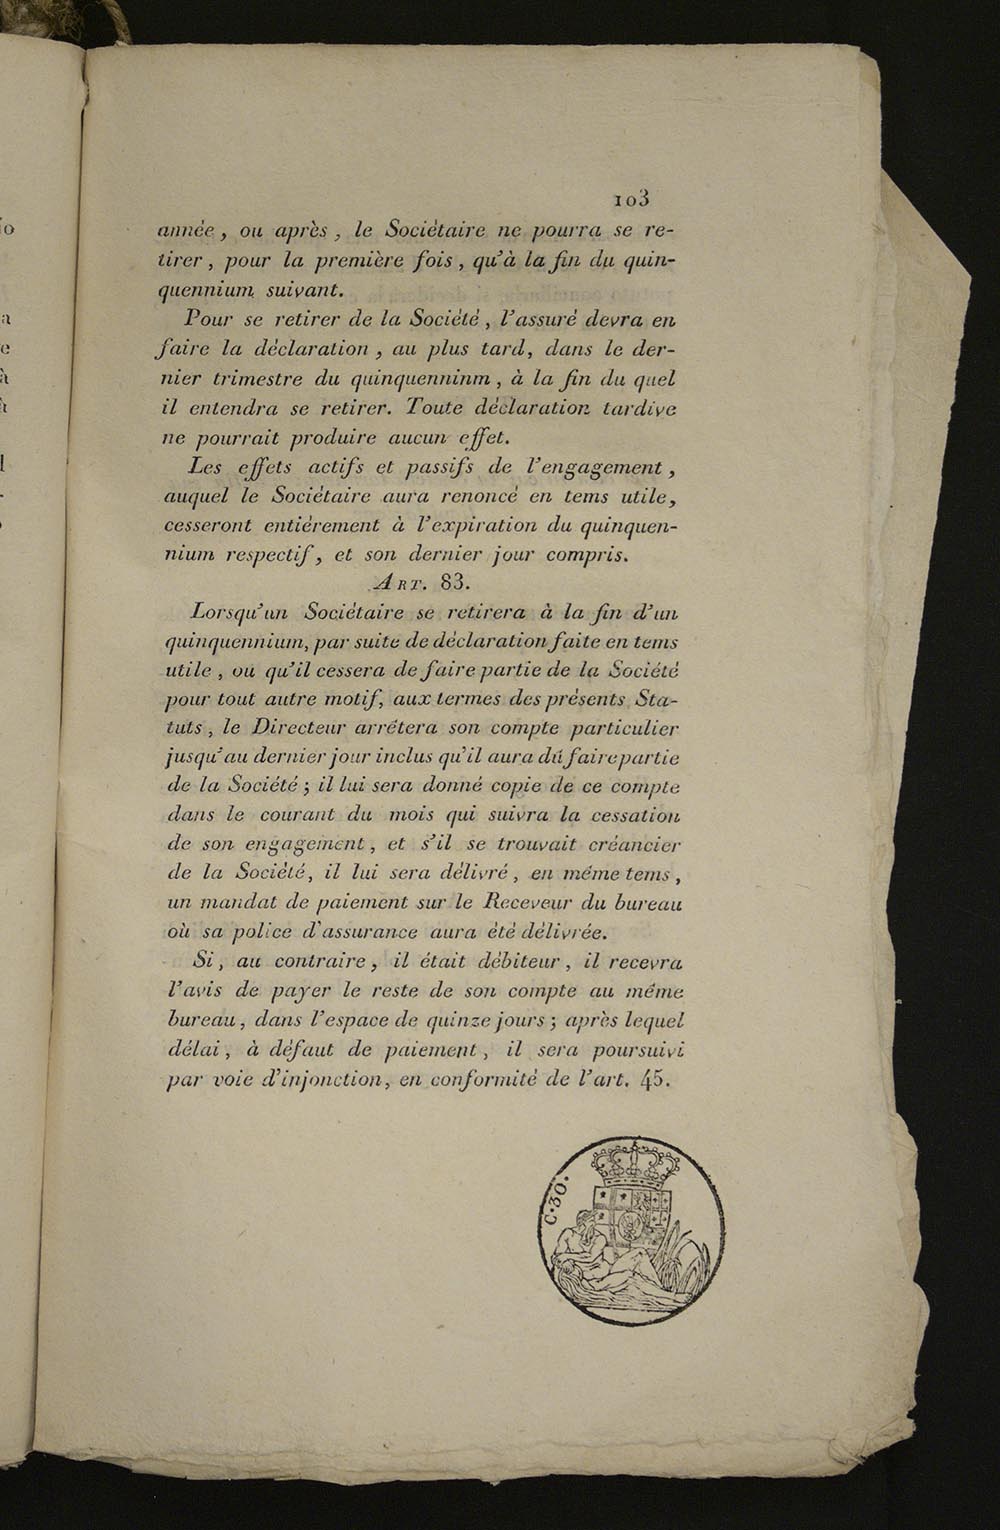 103
année, ou après, le Sociétaire ne pourra se re-
tirer, pour la première fois, qu'à la fin du quin-
quennium suivant.
Pour se retirer de la Société, l'assuré devra en
faire la déclaration, au plus tard, dans le der-
nier trimestre du quinquenninm, à la fin du quel
il entendra se retirer. Toute déclaration tardive
ne pourrait produire aucun effet.
Les effets actifs et passifs de l'engagement,
auquel le Sociétaire aura renoncé en tems utile,
cesseront entièrement à l'expiration du quinquen-
nium respectif, et son dernier jour compris.
ART. 83.
Lorsqu'un Sociétaire se retirera à la fin d'un
quinquennium, par suite de déclaration faite en tems
utile, ou qu'il cessera de faire partie de la Société
pour tout autre motif, aux termes des présents Sta-
tuts, le Directeur arrêtera son compte particulier
jusqu'au dernier jour inclus qu'il aura dû faire partie
de la Société; il lui sera donné copie de ce compte
dans le courant du mois qui suivra la cessation
de son engagement, et s'il se trouvait créancier
de la Société, il lui sera délivré, en même tems,
un mandat de paiement sur le Receveur du bureau
où sa police d'assurance aura été délivrée.
Si, au contraire, il était débiteur, il recevra
l'avis de payer le reste de son compte au même
bureau, dans l'espace de quinze jours; après lequel
délai, à défaut de paiement, il sera poursuivi
par voie d'injonction, en conformité de l'art. 45.
C. 30.